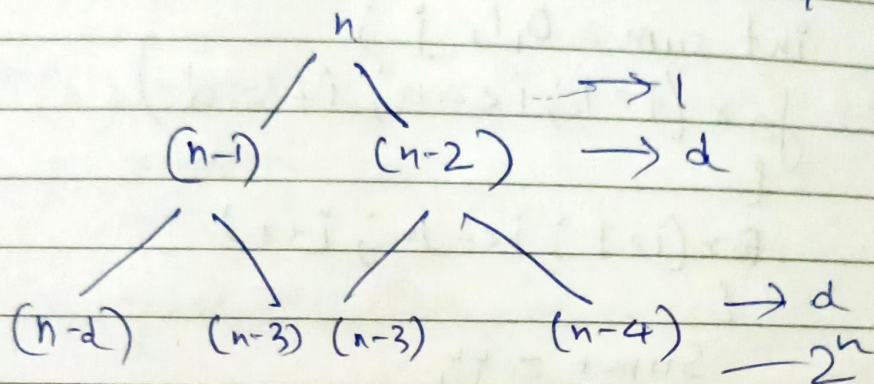 n
→ 1
(n-1) (n-2) → d
(n-2) (n-3) (n-3) (n-4) → d
— 2^n